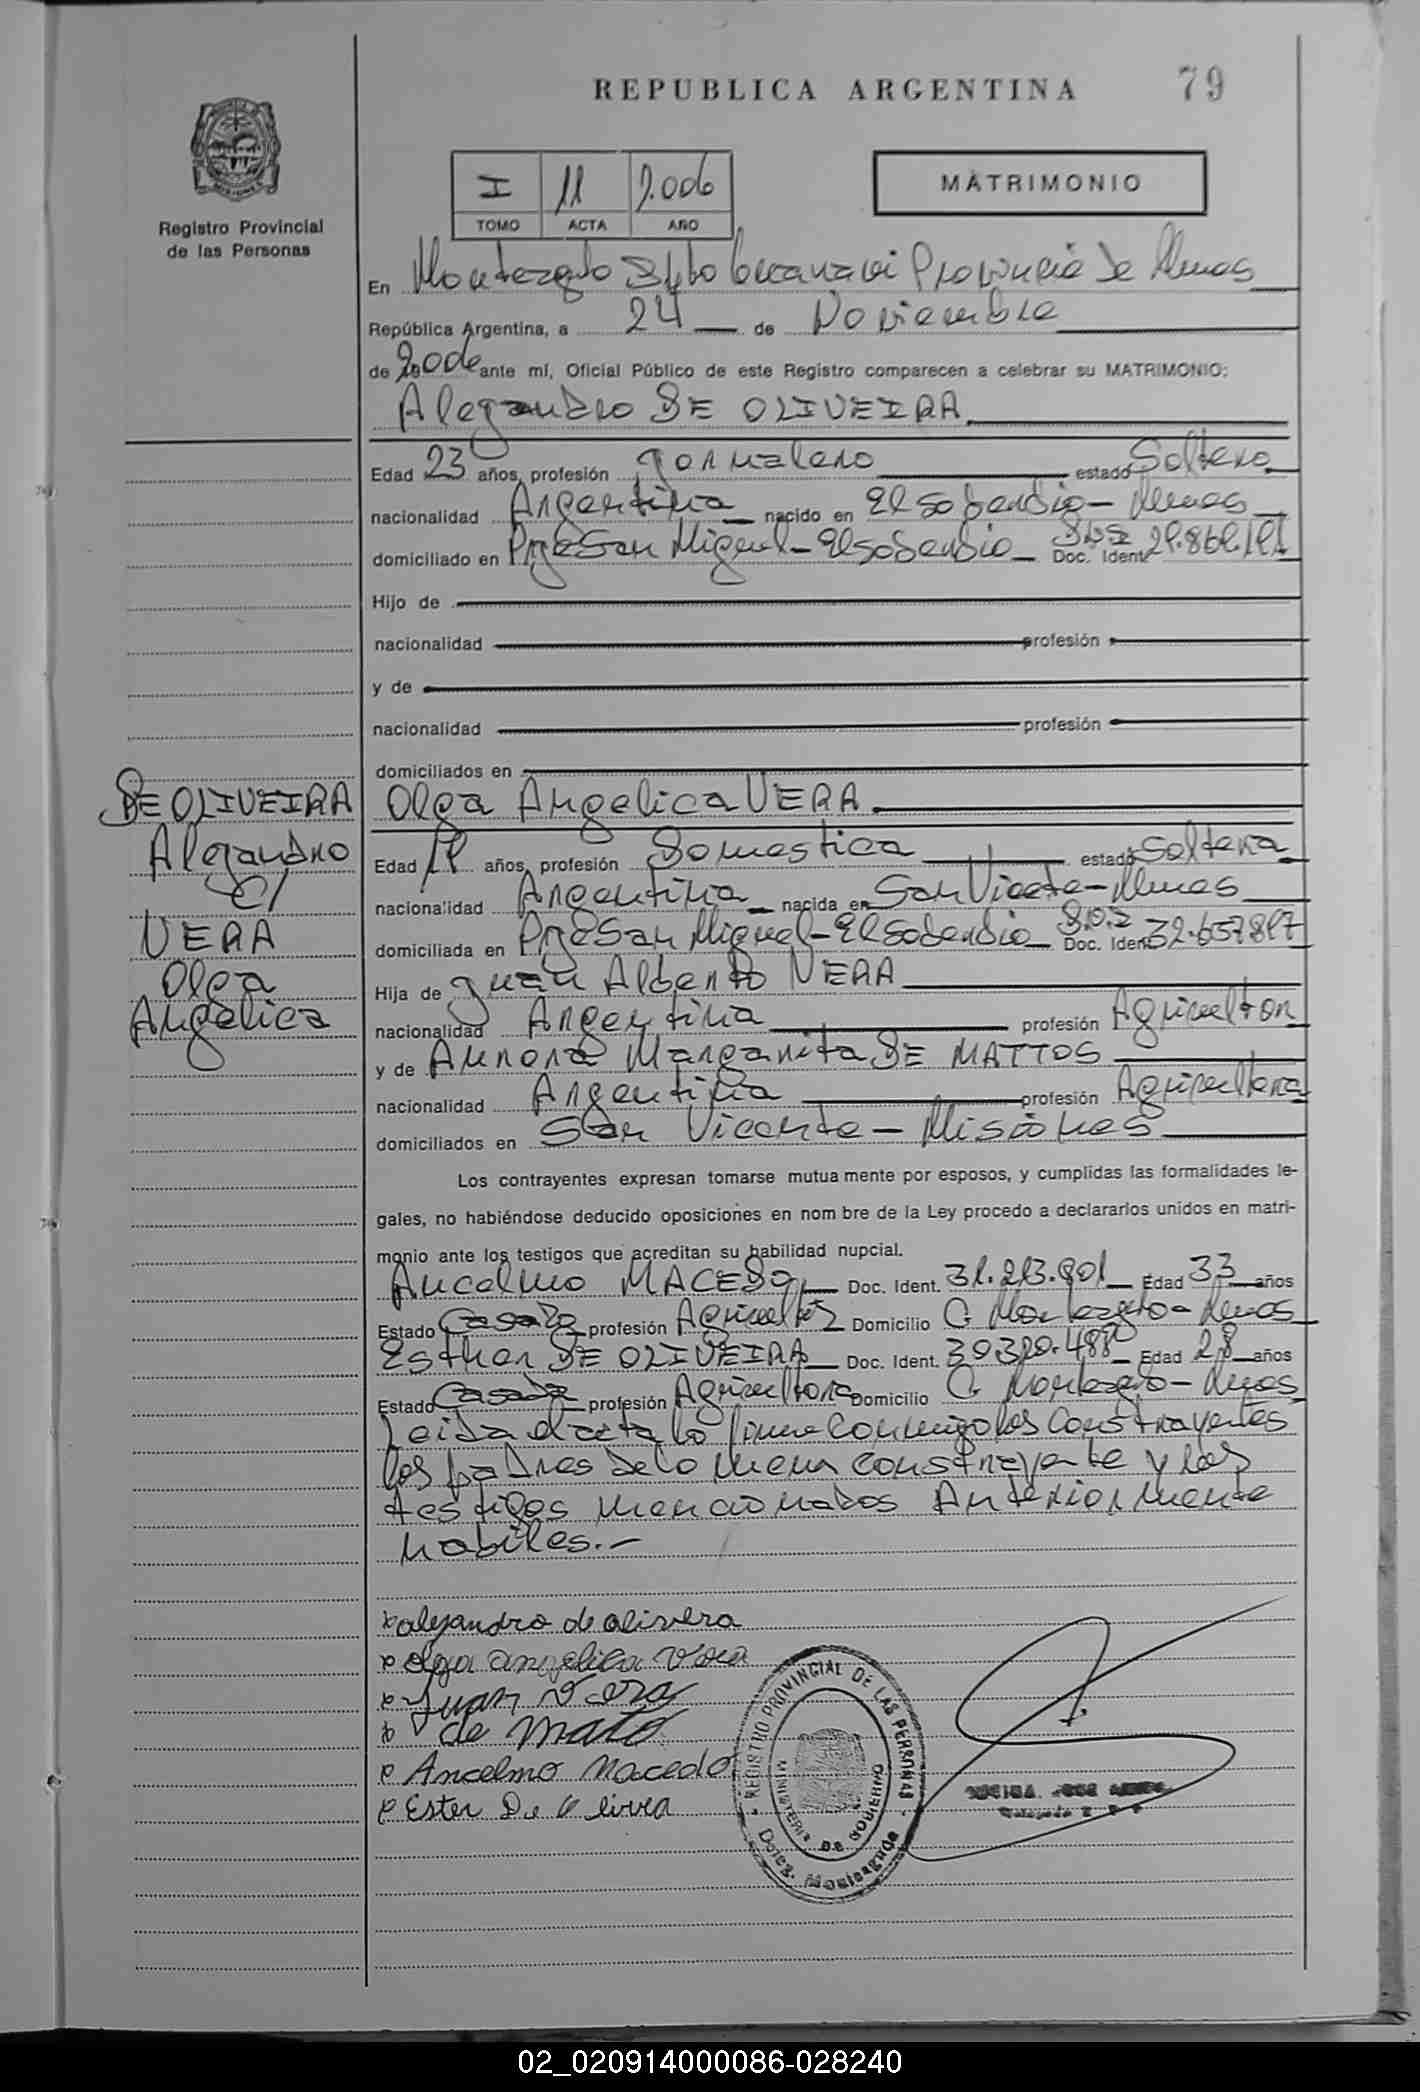 REPUBLICA ARGENTINA
79
Registro Provincial
de las Personas
I 11 2.006
TOMO ACTA AÑO
MATRIMONIO
En Monteagudo Dpto Guarani Provincia de Mnes
República Argentina, a 24 de Noviembre
de 2006 ante mí, Oficial Público de este Registro comparecen a celebrar su MATRIMONIO:
Alejandro DE OLIVEIRA
Edad 23 años, profesión Jornalero estado Soltero
nacionalidad Argentina nacido en El Soberbio - Mnes
domiciliado en Pje San Miguel - El Soberbio D.N.I Doc. Ident
Hijo de
nacionalidad profesión
y de
nacionalidad profesión
domiciliados en
Olga Angelica VERA
Edad años, profesión Domestica estado Soltera
nacionalidad Argentina nacida en San Vicente - Mnes
domiciliada en Pje San Miguel - El Soberbio Doc. Ident 32.657.897
Hija de Juan Alberto VERA
nacionalidad Argentina profesión Agricultor
y de Aurora Margarita DE MATTOS
nacionalidad Argentina profesión Agricultora
domiciliados en San Vicente - Misiones
DE OLIVEIRA
Alejandro
C/
VERA
Olga
Angelica
Los contrayentes expresan tomarse mutua mente por esposos, y cumplidas las formalidades le-
gales, no habiéndose deducido oposiciones en nom bre de la Ley procedo a declararlos unidos en matri-
monio ante los testigos que acreditan su habilidad nupcial.
Ancelmo MACEDO Doc. Ident. 31.213.901 Edad 33 años
Estado Casado profesión Agricultor Domicilio C. Monteagudo - Mnes
Esther DE OLIVEIRA Doc. Ident. Edad 28 años
Estado Casada profesión Agricultora Domicilio C. Monteagudo - Mnes
Leida el acta lo firma conmigo los constrayentes
los padres de la menor constrayente y los
testigos mencionados Anteriormente
habiles.-
alejandro de olivera
olga angelica Vera
Juan Vera
de mato
Ancelmo Macedo
Ester De Olivera
REGISTRO PROVINCIAL DE LAS PERSONAS
MINISTERIO DE GOBIERNO
Deleg. Monteagudo
02_020914000086-028240